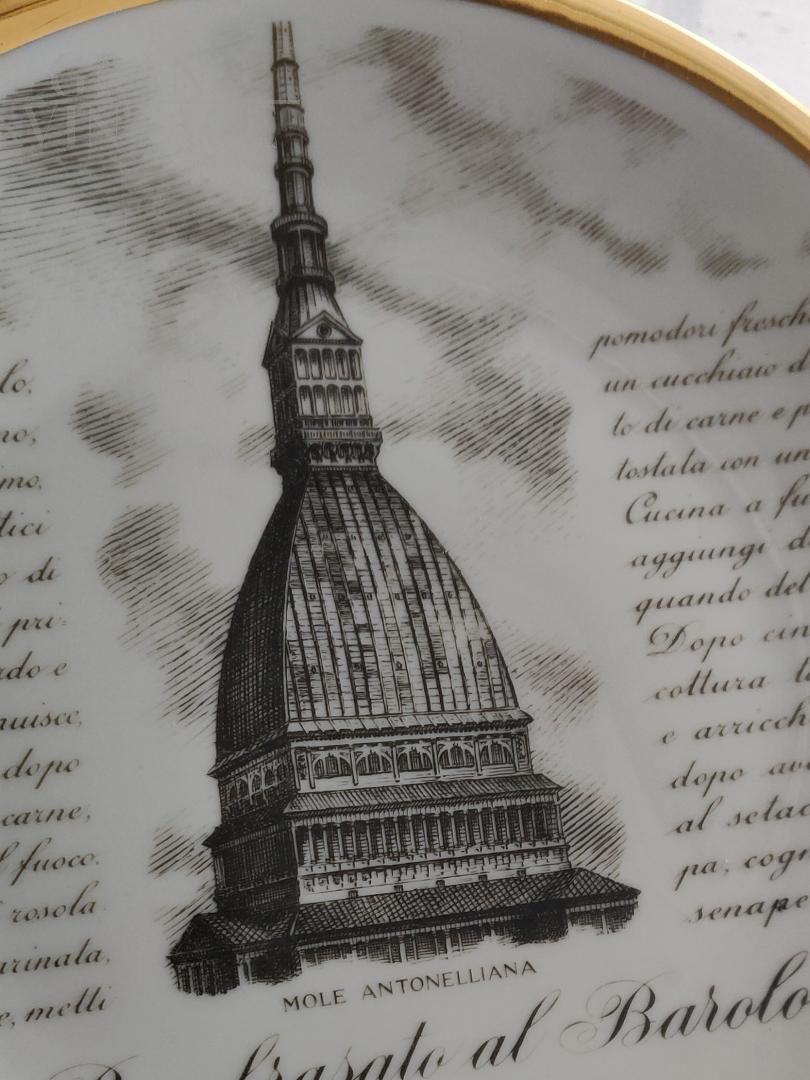 lo,
no,
imo,
di
pri-
rdo e
nuisce,
dopo
carne,
l fuoco.
rosola
arinata,
e, metti
pomodori freschi
un cucchiaio d
to di carne e p
tostata con un
Cucina a fu
aggiungi d
quando del
Dopo cin
cottura
e arricch
dopo av
al setac
pa, cogn
senape
MOLE ANTONELLIANA
al Barolo